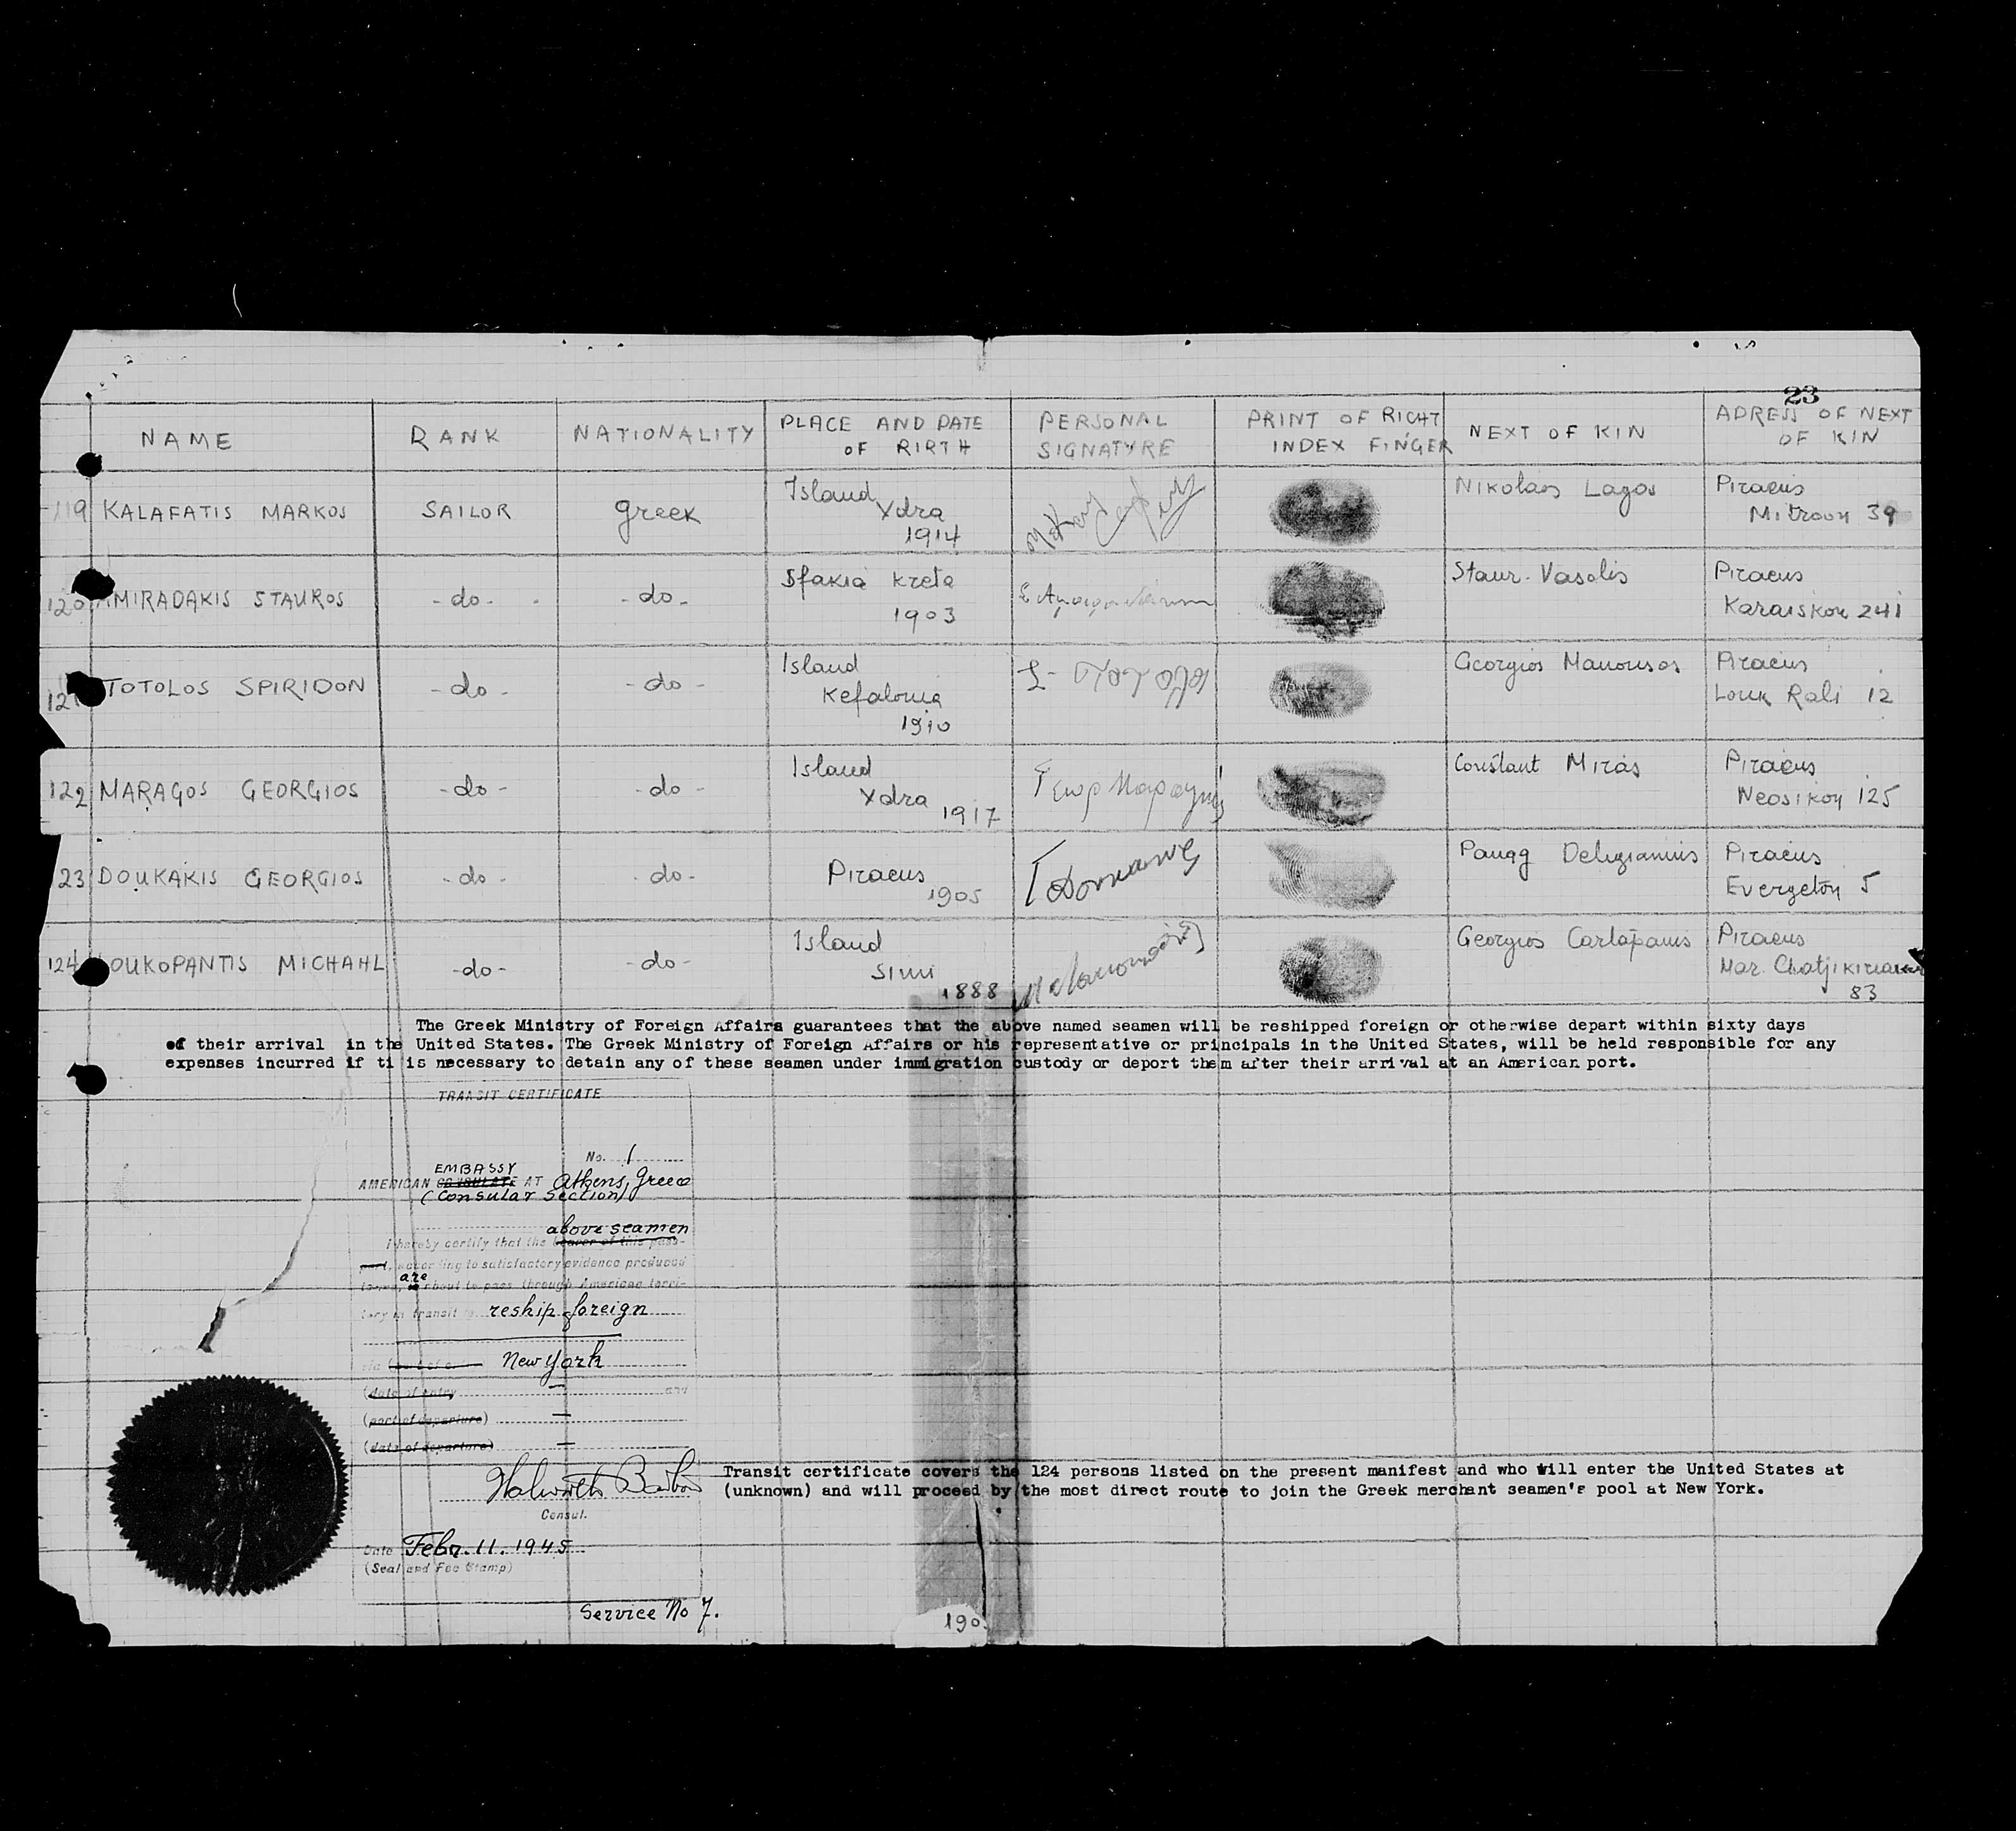 23
NAME RANK NATIONALITY PLACE AND DATE OF RIRTH PERSONAL SIGNATYRE PRINT OF RIGHT INDEX FINGER NEXT OF KIN ADRESS OF NEXT OF KIN
119 KALAFATIS MARKOS SAILOR Greek Island Ydra 1914 Nikolaos Lagos Piraeus Mitroou 39
120 AMIRADAKIS STAUROS -do- -do- Sfakia Kreta 1903 Staur. Vasolis Piraeus Karaiskou 241
121 TOTOLOS SPIRIDON -do- -do- Island Kefalonia 1910 Georgios Manousos Piraeus Louk Rali 12
122 MARAGOS GEORGIOS -do- -do- Island Ydra 1917 Constant Miras Piraeus Neosikoy 125
23 DOUKAKIS GEORGIOS -do- -do- Piraeus 1905 Panag Deligiannis Piraeus Evergeton 5
124 OUKOPANTIS MICHAHL -do- -do- Island Simi 1888 Georgios Carlapanis Piraeus Mar. Chatjikiriakou 83
The Greek Ministry of Foreign Affairs guarantees that the above named seamen will be reshipped foreign or otherwise depart within sixty days
of their arrival in the United States. The Greek Ministry of Foreign Affairs or his representative or principals in the United States, will be held responsible for any
expenses incurred if ti is necessary to detain any of these seamen under immigration custody or deport them after their arrival at an American port.
TRANSIT CERTIFICATE
No. 1
EMBASSY
AMERICAN CONSULATE AT Athens, Greece
(Consular Section)
above seamen
I hereby certify that the bearer of this pass-
port, according to satisfactory evidence produced
are
about to pass through American terri-
tory in transit to reship foreign
via New York
(date of entry and
(port of departure) —
(date of departure) —
Consul.
Date Febr. 11. 1945
(Seal and Fee Stamp)
Service No 7.
Transit certificate covers the 124 persons listed on the present manifest and who will enter the United States at
(unknown) and will proceed by the most direct route to join the Greek merchant seamen's pool at New York.
190